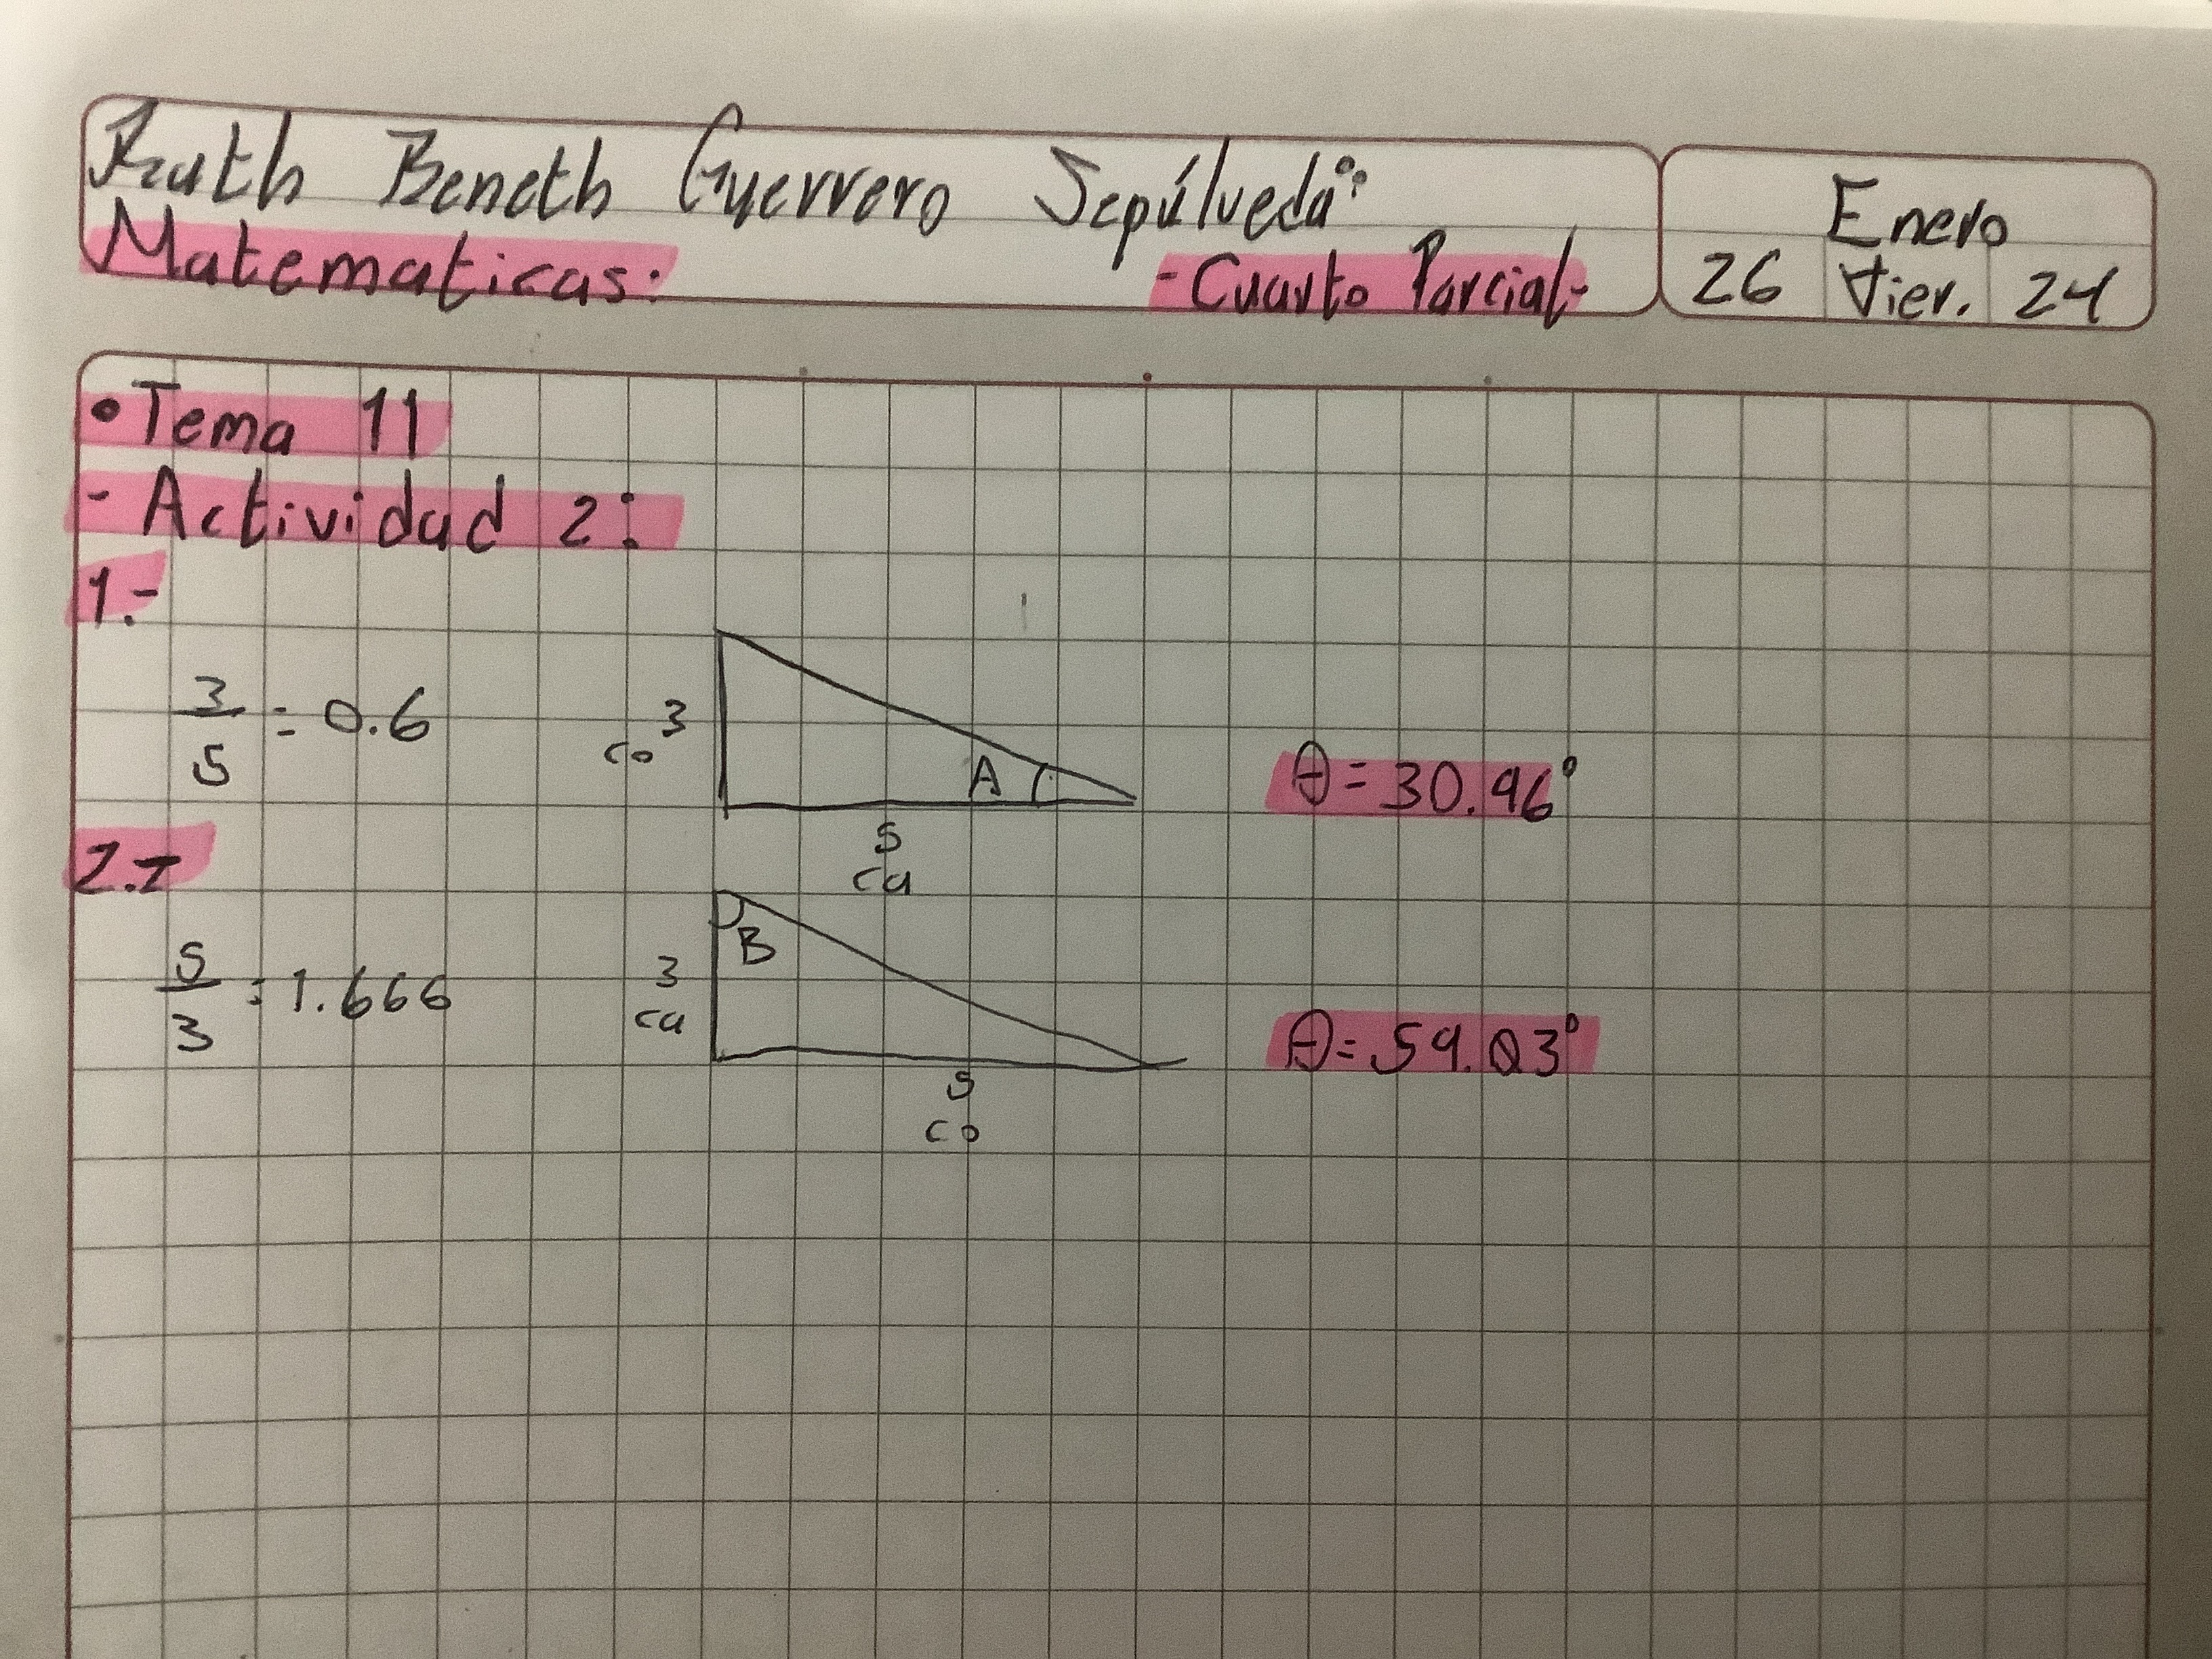 Ruth Beneth Guerrero Sepúlveda:
Matematicas: -Cuarto Parcial-
Enero
26 Vier. 24
•Tema 11
- Actividad 2:
1.-
3/5 = 0.6
3
co
A
5
ca
θ=30.96°
2.-
5/3 = 1.666
B
3
ca
5
co
θ=59.03°